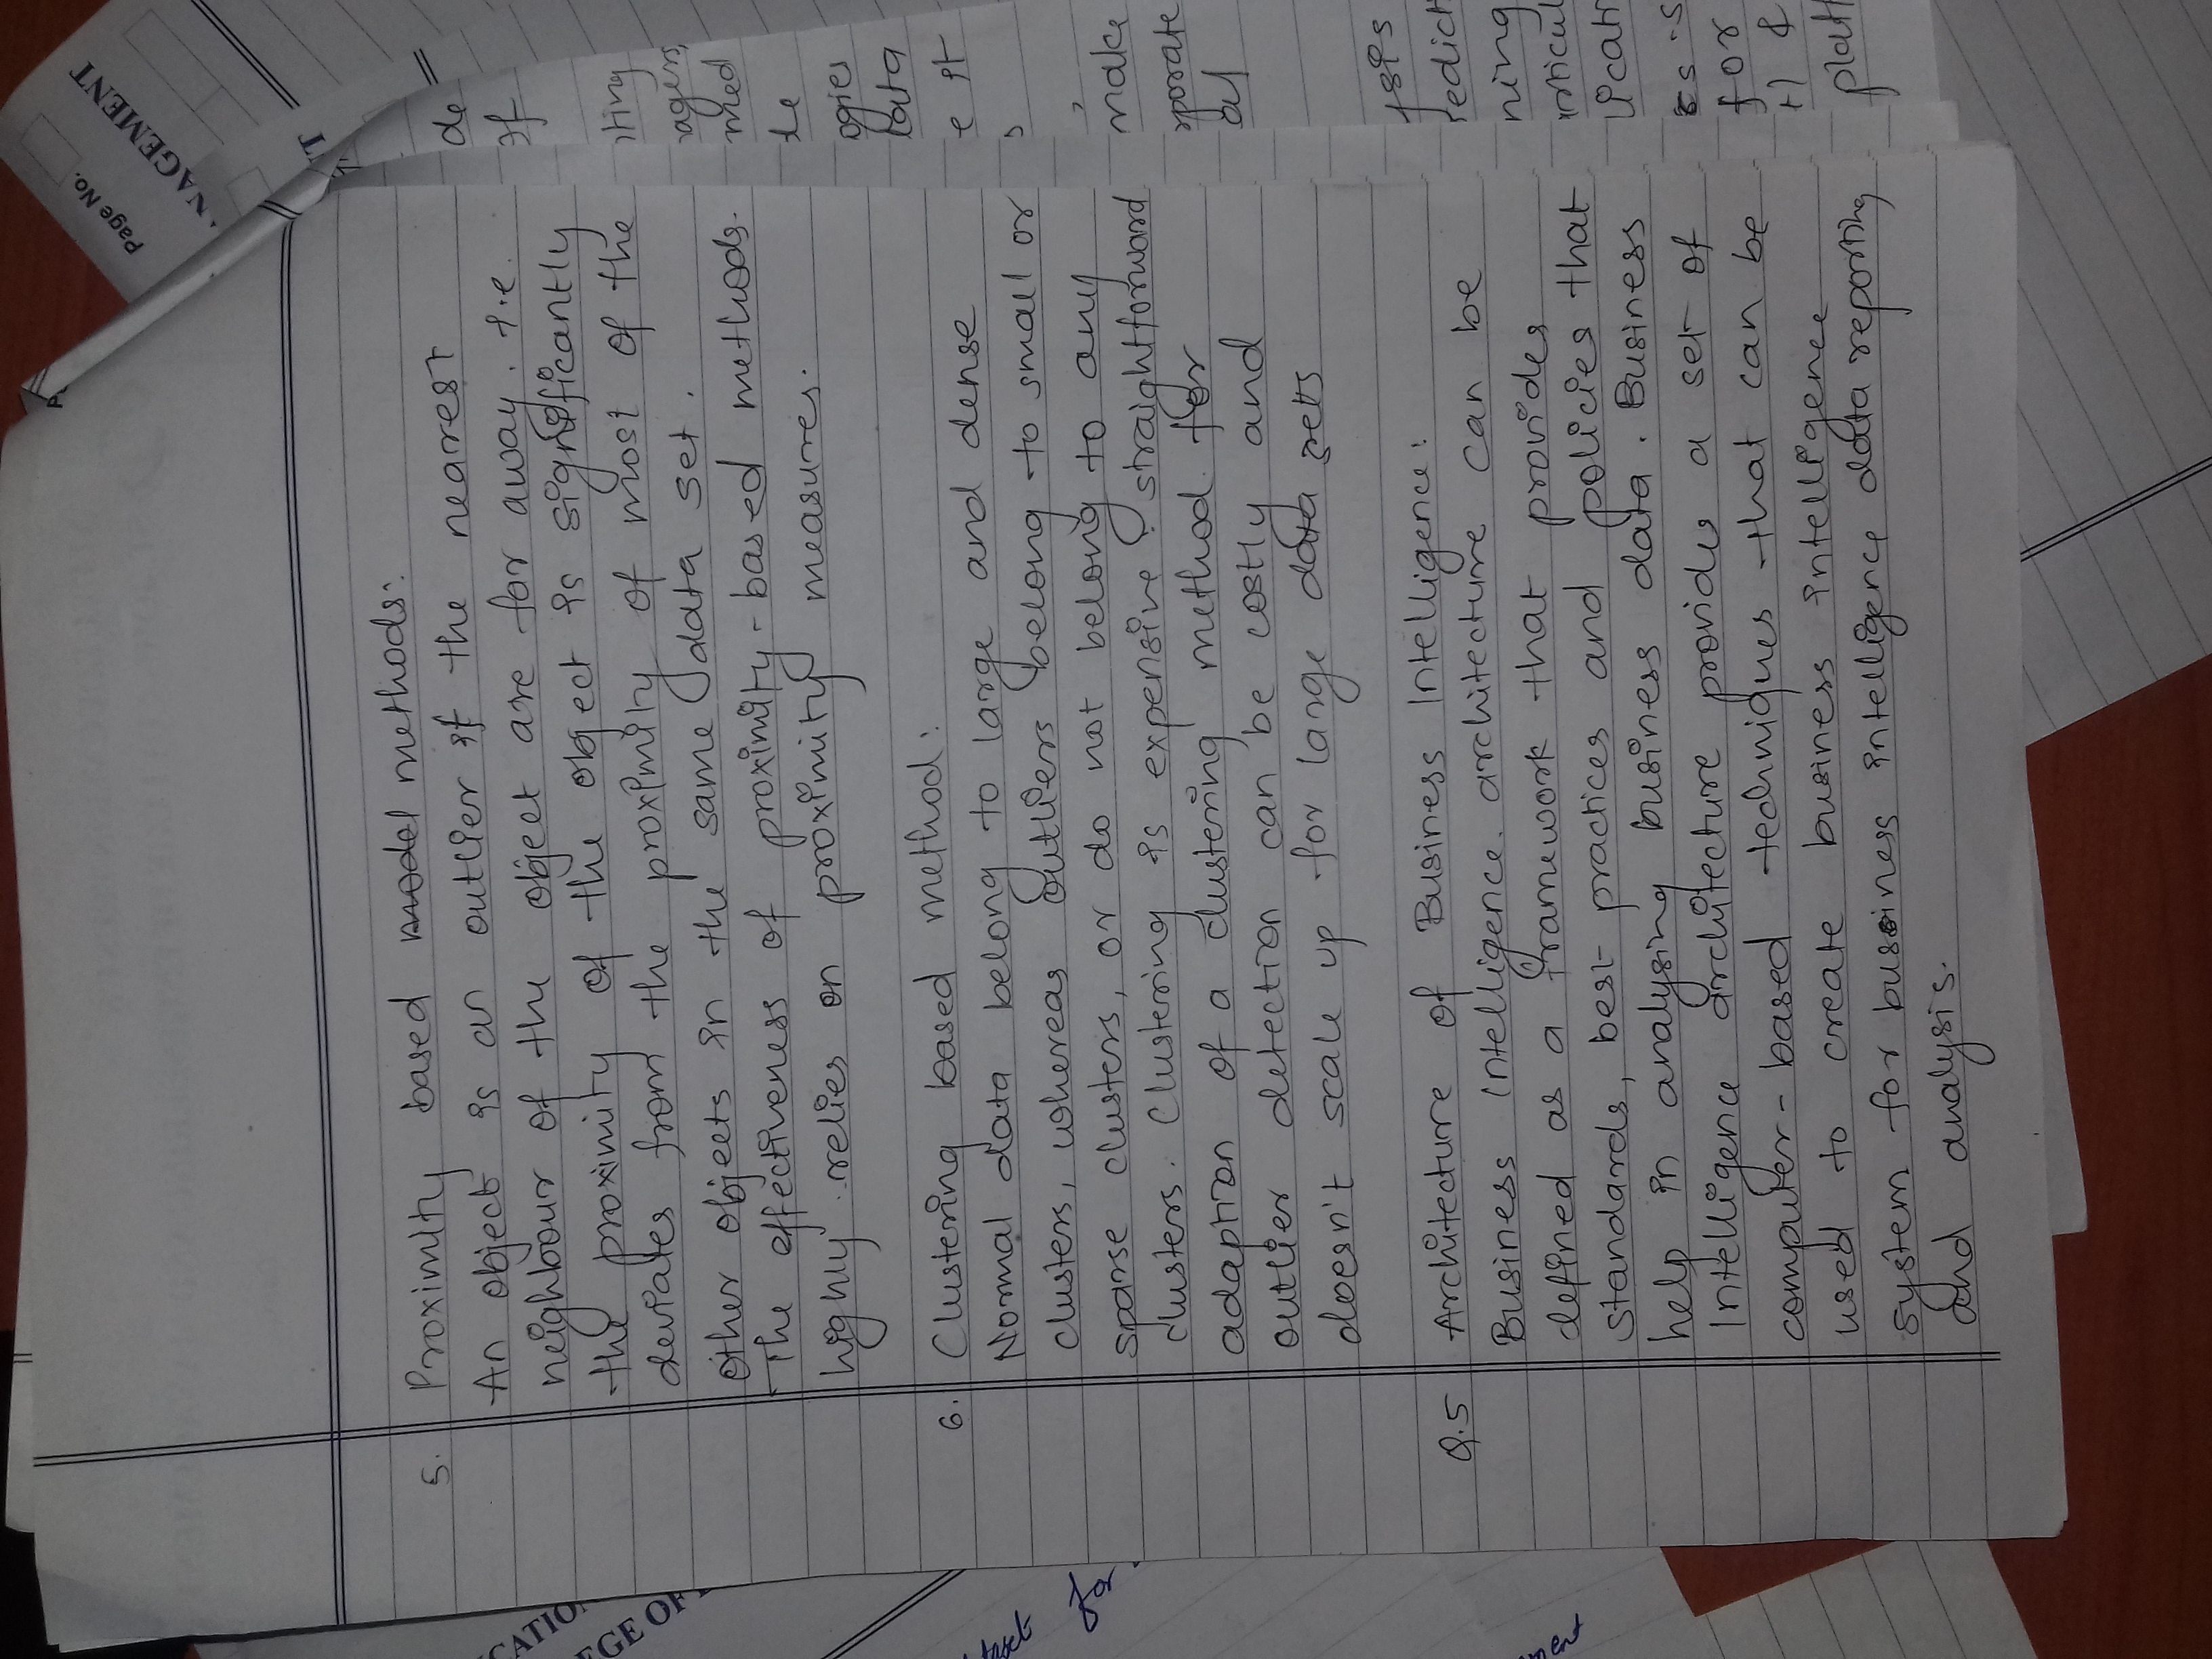 Page No.
NAGEMENT
5. Proximity based model methods:
An object is an outlier if the nearest
neighbour of the object are far away. i.e.
the proximity of the object is significantly
deviates from the proximity of most of the
other objects in the same data set.
The effectiveness of proximity-based methods.
highly relies on proximity measures.
6. Clustering based method:
Normal data belong to large and dense
clusters, whereas outliers belong to small or
sparse clusters, or do not belong to any
clusters. Clustering is expensive: straightforward
adaption of a clustering method for
outlier detection can be costly and
doesn't scale up for large data sets
Q.5 Architecture of Business Intelligence:
Business Intelligence architecture can be
defined as a framework that provides
standards, best practices and policies that
help in analysing business data. Business
Intelligence architecture provides a set of
computer-based techniques that can be
used to create business intelligence
system for business intelligence data reporting
and analysis.
CATIO
EGE OF
for
de
of
agers,
med
ogies
e it
make
porate
al
ysis
redict
ning
for
&